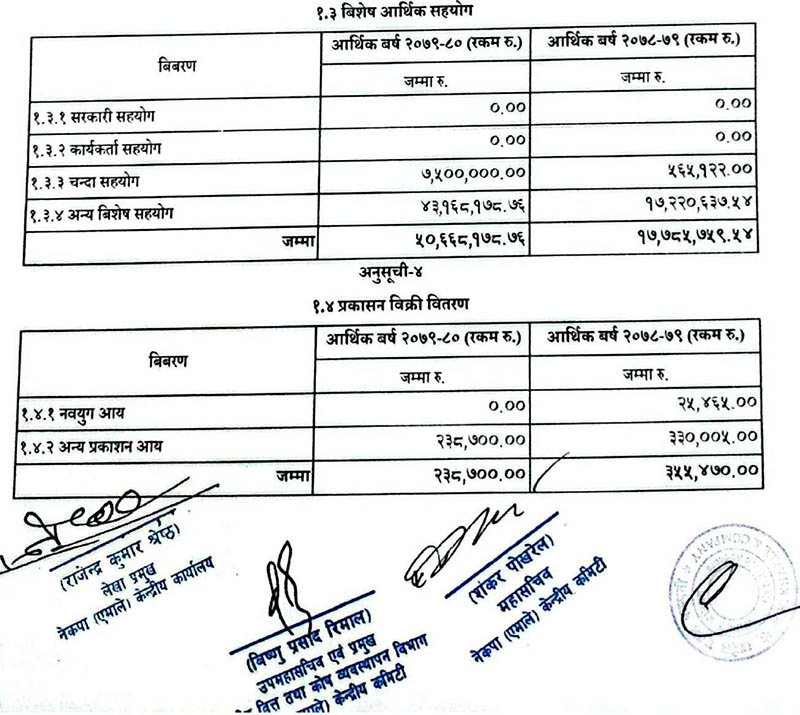 १.३ बिशेष आर्थिक सहयोग
बिबरण आर्थिक बर्ष २०७९-८० (रकम रु.) आर्थिक बर्ष २०७८-७९ (रकम रु.)
जम्मा रु. जम्मा रु.
१.३.१ सरकारी सहयोग ०.०० ०.००
१.३.२ कार्यकर्ता सहयोग ०.०० ०.००
१.३.३ चन्दा सहयोग ७,५००,०००.०० ५६५,१२२.००
१.३.४ अन्य बिशेष सहयोग ४३,१६८,१७८.७६ १७,२२०,६३७.५४
जम्मा ५०,६६८,१७८.७६ १७,७८५,७५९.५४
अनुसूची-४
१.४ प्रकासन विक्री वितरण
बिबरण आर्थिक बर्ष २०७९-८० (रकम रु.) आर्थिक बर्ष २०७८-७९ (रकम रु.)
जम्मा रु. जम्मा रु.
१.४.१ नवयुग आय ०.०० २५,४६५.००
१.४.२ अन्य प्रकाशन आय २३८,७००.०० ३३०,००५.००
जम्मा २३८,७००.०० ३५५,४७०.००
(राजेन्द्र कुमार श्रेष्ठ)
लेखा प्रमुख
नेकपा (एमाले) केन्द्रीय कार्यालय
(विष्णु प्रसाद रिमाल)
उपमहासचिव एवं प्रमुख
वित्त तथा कोष व्यवस्थापन विभाग
एमाले) केन्द्रीय कमिटी
(शंकर पोखरेल)
महासचिव
नेकपा (एमाले) केन्द्रीय कमिटी
COMPANY